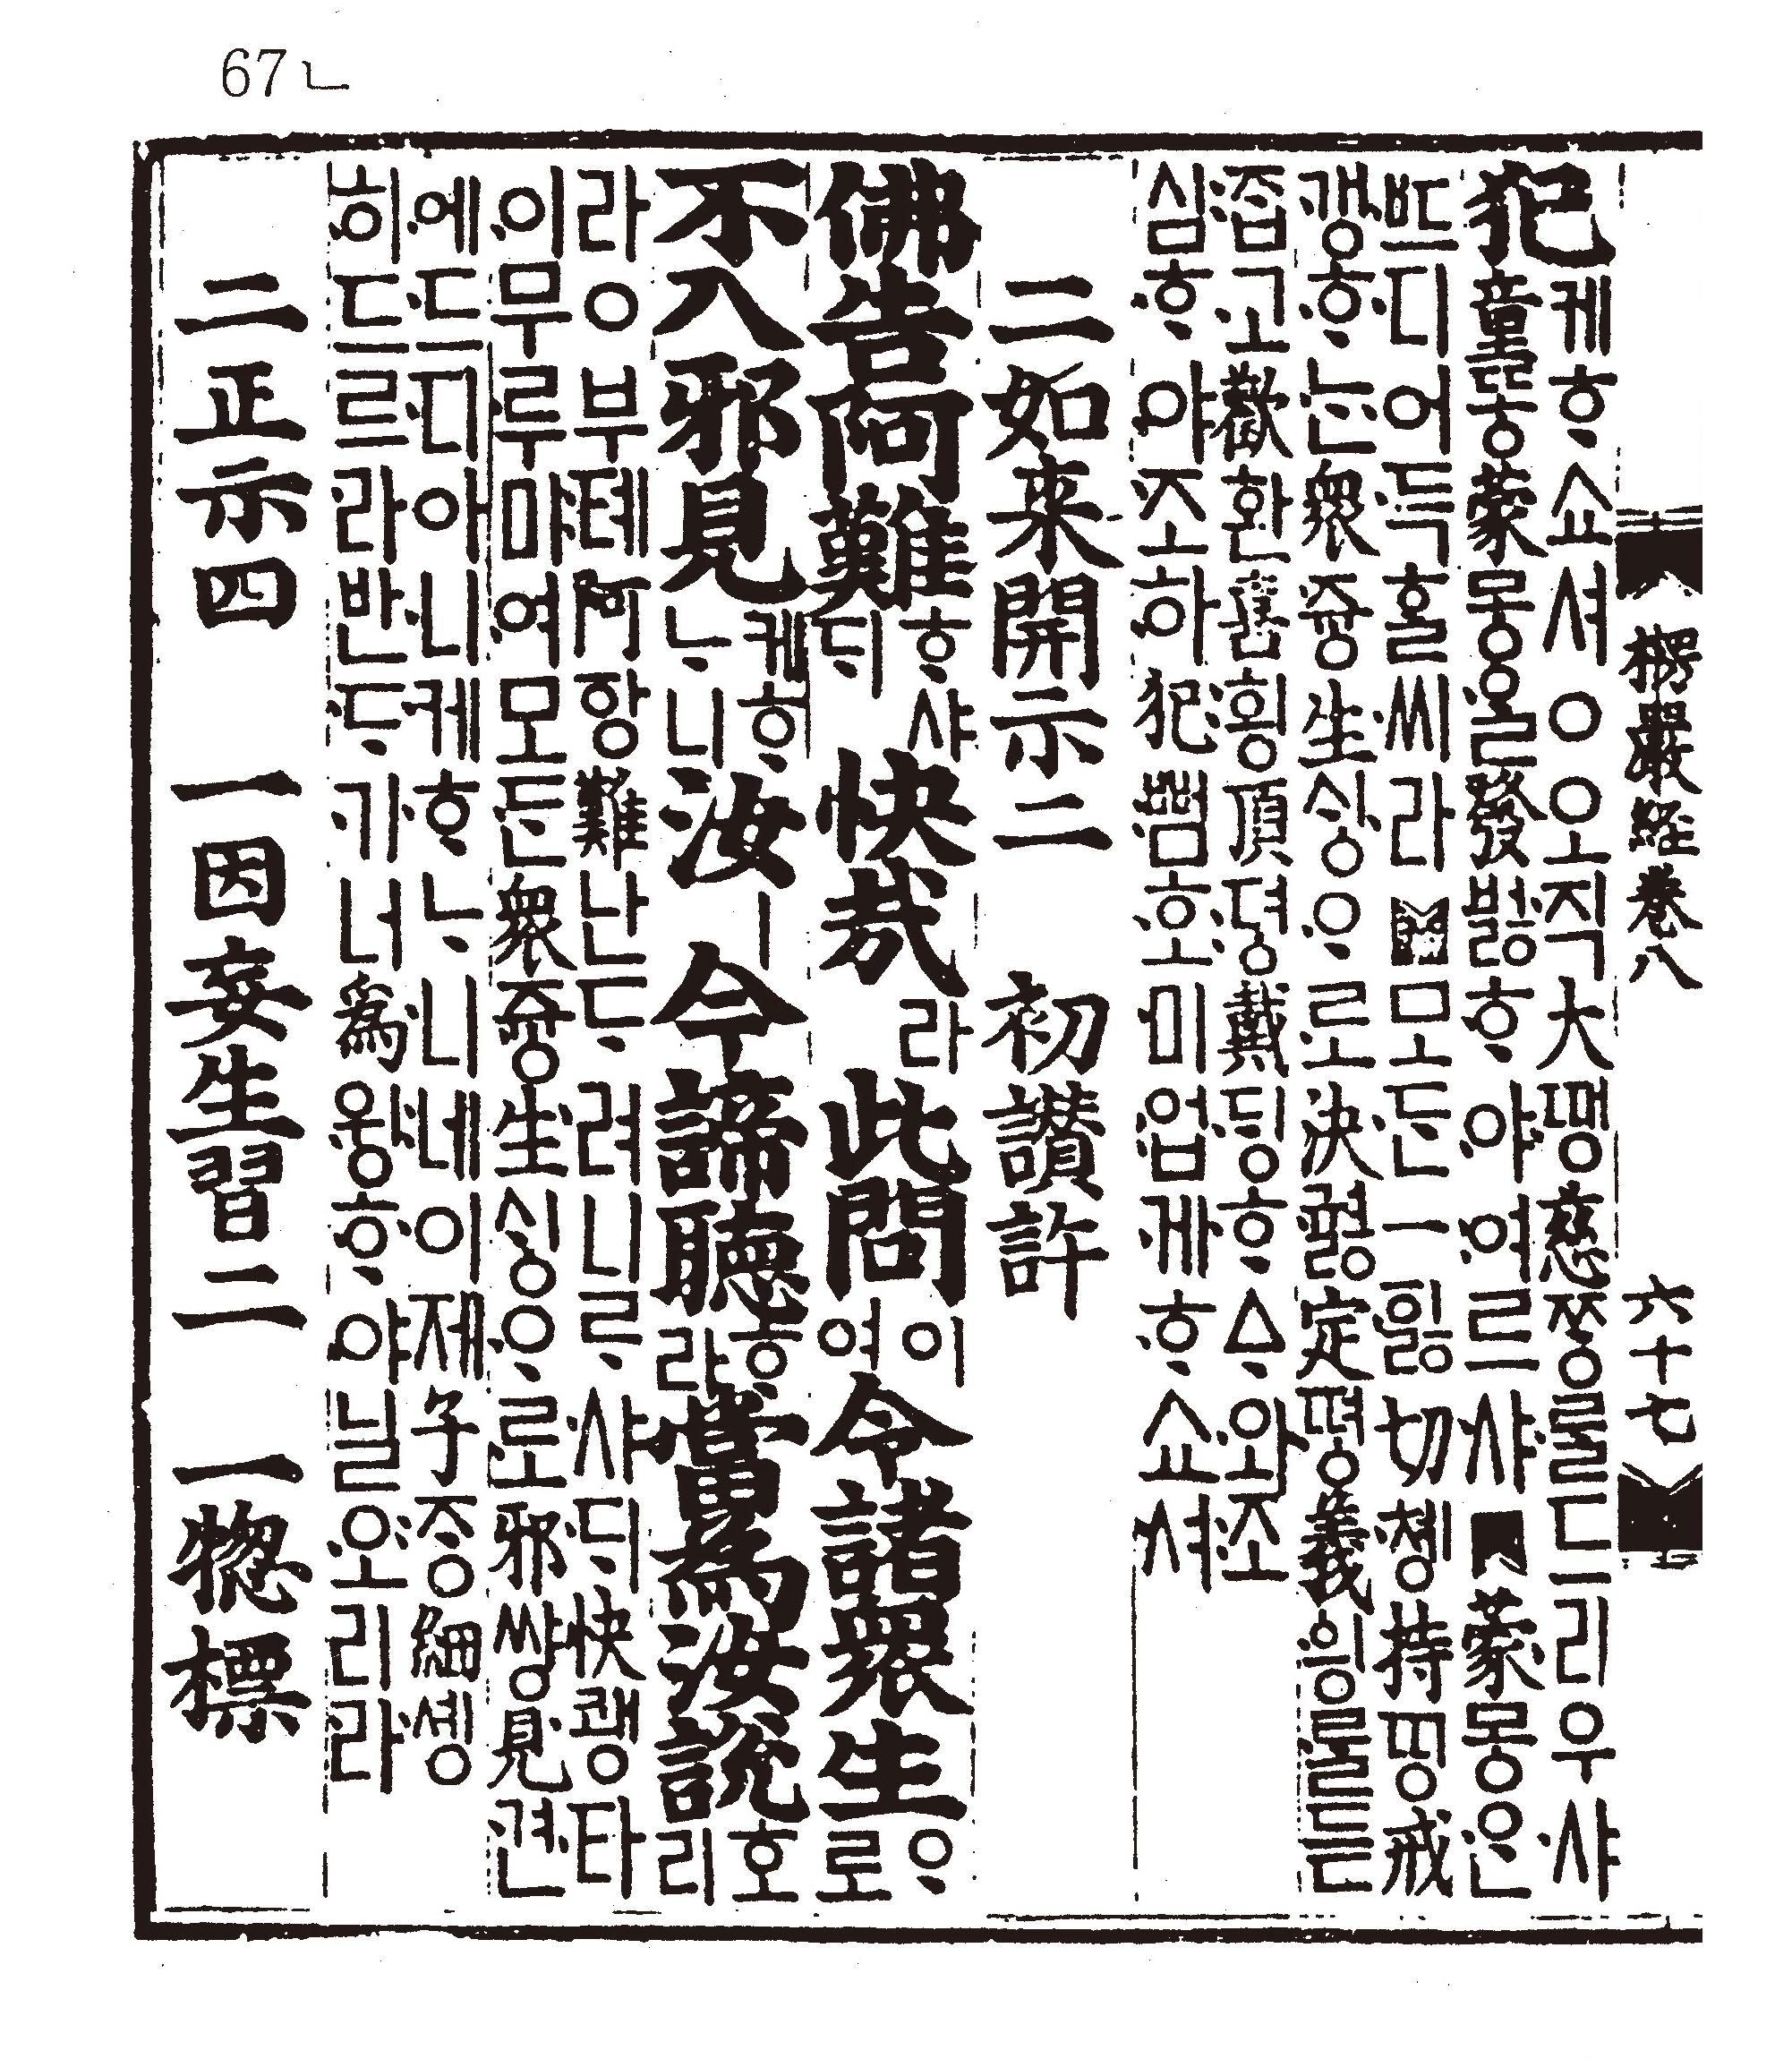 67ㄴ
楞嚴経卷八 六十七
犯케ᄒᆞ쇼셔○오직大땡慈ᄍᆞᆼ를드리우샤
童동蒙몽ᄋᆞᆯ發벓ᄒᆞ야여르샤蒙몽ᄋᆞᆫ
ᄠᅳ디어득ᄒᆞᆯ씨라모ᄃᆞᆫ一ᅙᅵᇙ切촁持띵戒
갱ᄒᆞᄂᆞᆫ衆즁生ᄉᆡᆼᄋᆞ로決ᄀᆑᇙ定뗭義읭ᄅᆞᆯ듣
ᄌᆞᆸ고歡환喜힁頂뎡戴ᄃᆡᆼᄒᆞᅀᆞ와조
심ᄒᆞ야조하犯뻠호미업게ᄒᆞ쇼셔
二如来開示二 初讃許
佛告阿難ᄒᆞ샤ᄃᆡ快哉라此問이여令諸衆生ᄋᆞ로
不入邪見케ᄒᆞᄂᆞ니汝ㅣ今諦聽ᄒᆞ라當爲汝說호리
라○부톄阿ᅙᅡᆼ難난ᄃᆞ려니ᄅᆞ샤ᄃᆡ快쾡타
이무루미여모ᄃᆞᆫ衆즁生ᄉᆡᆼᄋᆞ로邪썅見견
에드디아니케ᄒᆞᄂᆞ니네이제子ᄌᆞᆼ細솅
히드르라반ᄃᆞ기너爲윙ᄒᆞ야닐오리라
二正示四 一因妄生習二 一揔標